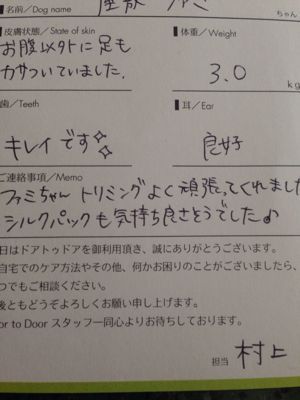 名前/Dog name
ファミ ちゃん
皮膚状態/State of skin
体重/Weight
お腹以外に足も
カサついていました。
3.0 kg
歯/Teeth
耳/Ear
キレイです☆
良好
ご連絡事項/Memo
ファミちゃん トリミングよく頑張ってくれまし
シルクパックも気持ち良さそうでした♪
日はドアトゥドアを御利用頂き、誠にありがとうございます。
自宅でのケア方法やその他、何かお困りのことがございましたら、
つでもご相談ください。
後ともどうぞよろしくお願い申し上げます。
or to Door スタッフ一同心よりお待ちしております。
担当 村上